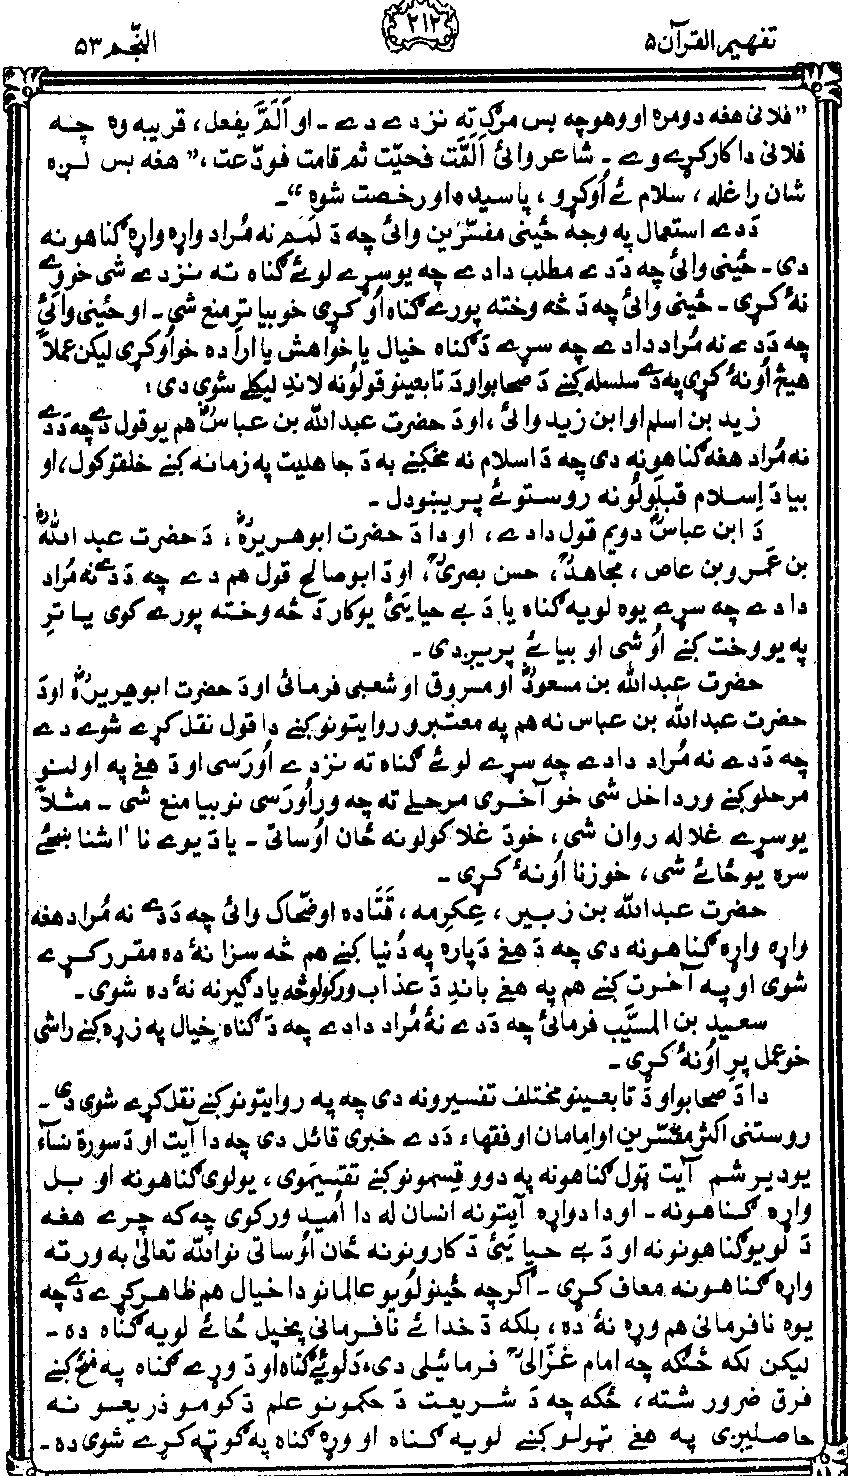 تفهيم القرآن ۵
۲۱۲
النّجم ۵۳
”فلانی هغه دومره اووهوچه بس مرګ ته نزدے دے ـ او اَلَمَّ يفعل، قريبه وه چه
فلانی دا کار کړے وے ـ شاعر وائ اَلَمَّت فحيّت ثم قامت فودّعت ،” هغه بس لږه
شان راغله ، سلام ئے اُوکړو ، پاسيده اورخصت شوه “ـ
دَدے استعمال په وجه ځينی مفسّرين وائ چه دَ لَمَم نه مُراد واړه واړه ګناهونه
دی ـ ځينی وائ چه دَدے مطلب دادے چه يوسړے لوئے ګناه ته نزدے شی خو ئے
نهٔ کړی ـ ځينی وائ چه دَ څه وخته پورے ګناه اُوکړی خو بيا ترمنع شی ـ او ځينی وائ
چه دَدے نه مُراد دادے چه سړے دَ ګناه خيال يا خواهش يا اراده خو اُوکړی ليکن عملاً
هيڅ اُونهٔ کړی په دے سلسله کښے دَ صحابو او دَ تابعينو قولونه لاندِ ليکلے شوی دی :
زيد بن اسلم او ابن زيد وائ ، او دَ حضرت عبدالله بن عباسؓ هم يو قول دے چه دَدے
نه مُراد هغه ګناهونه دی چه دَ اسلام نه مخکښے به دَ جاهليت په زمانه کښے خلقو کول ، او
بيا دَ اِسلام قبلولو نه روستو ئے پريښودل ـ
دَ ابن عباسؓ دويم قول دادے ، او دا دَ حضرت ابوهريرهؓ ، دَ حضرت عبدالله
بن عَمرو بن عاص ، مجاهدؒ ، حسن بصریؒ ، او دَ ابوصالح قول هم دے چه دَدے نه مُراد
دادے چه سړے يوه لويه ګناه يا دَ بے حيايئ يو کار دَ څه وخته پورے کوی يا ترِ
په يو وخت کښے اُوشی او بيا ئے پريږدی ـ
حضرت عبدالله بن مسعودؓ او مسروق او شعبی فرمائی او دَ حضرت ابوهريرهؓ او دَ
حضرت عبدالله بن عباس نه هم په معتبرو روايتونو کښے دا قول نقل کړے شوے دے
چه دَدے نه مُراد دادے چه سړے لوئے ګناه ته نزدے اُورسی او دَ هغے په اولنو
مرحلو کښے ورداخل شی خو آخری مرحلے ته چه وراُورسی نو بيا منع شی ـ مثلاً
يو سړے غلا له روان شی ، خو دَ غلا کولو نه ځان اُوساتی ـ يا دَ يوے نا اشنا ښځے
سره يو ځائے شی ، خو زنا اُونهٔ کړی ـ
حضرت عبدالله بن زبير ، عِکرِمه ، قَتَاده او ضحّاک وائ چه دَدے نه مُراد هغه
واړه واړه ګناهونه دی چه دَ هغے دَپاره په دُنيا کښے هم څه سزا نهٔ ده مقرر کړے
شوی او په آخرت کښے هم په هغے باندِ دَ عذاب ورکولو څه يادګيرنه نهٔ ده شوی ـ
سعيد بن المسيَّب فرمائی چه دَدے نهٔ مُراد دادے چه دَ ګناه خيال په زړه کښے راشی
خو عمل پرِ اُونهٔ کړی ـ
دا دَ صحابو او دَ تابعينو مختلف تفسيرونه دی چه په روايتونو کښے نقل کړے شوی دی ـ
روستنی اکثر مفسّرين او امامان او فقهاء دَدے خبری قائل دی چه دا آيت او دَ سورة نسآء
يو ديرشم آيت ټول ګناهونه په دوو قِسمونو کښے تقسيموی ، يو لوی ګناهونه او بل
واړه ګناهونه ـ او دا دواړه آيتونه انسان له دا اُميد ورکوی چه که چرے هغه
دَ لويو ګناهونو نه او دَ بے حيايئ دَ کارونو نه ځان اُوساتی نو الله تعالیٰ به ورته
واړه ګناهونه معاف کړی ـ اګرچه ځينو لويو عالمانو دا خيال هم ظاهر کړے دے چه
يوه نافرمانی هم وړه نهٔ ده ، بلکه دَ خدا ئے نافرمانی پخپل ځائے لويه ګناه ده ـ
ليکن لکه څنګه چه امام غزالیؒ فرمائيلی دی ، دَ لوئے ګناه او دَ وړے ګناه په مخ کښے
فرق ضرور شته ، ځکه چه دَ شريعت دَ حکمونو علم دَ کومو ذريعو نه
حاصليږی په هغے ټولو کښے لويه ګناه او وړه ګناه په ګوته کړے شوی ده ـ